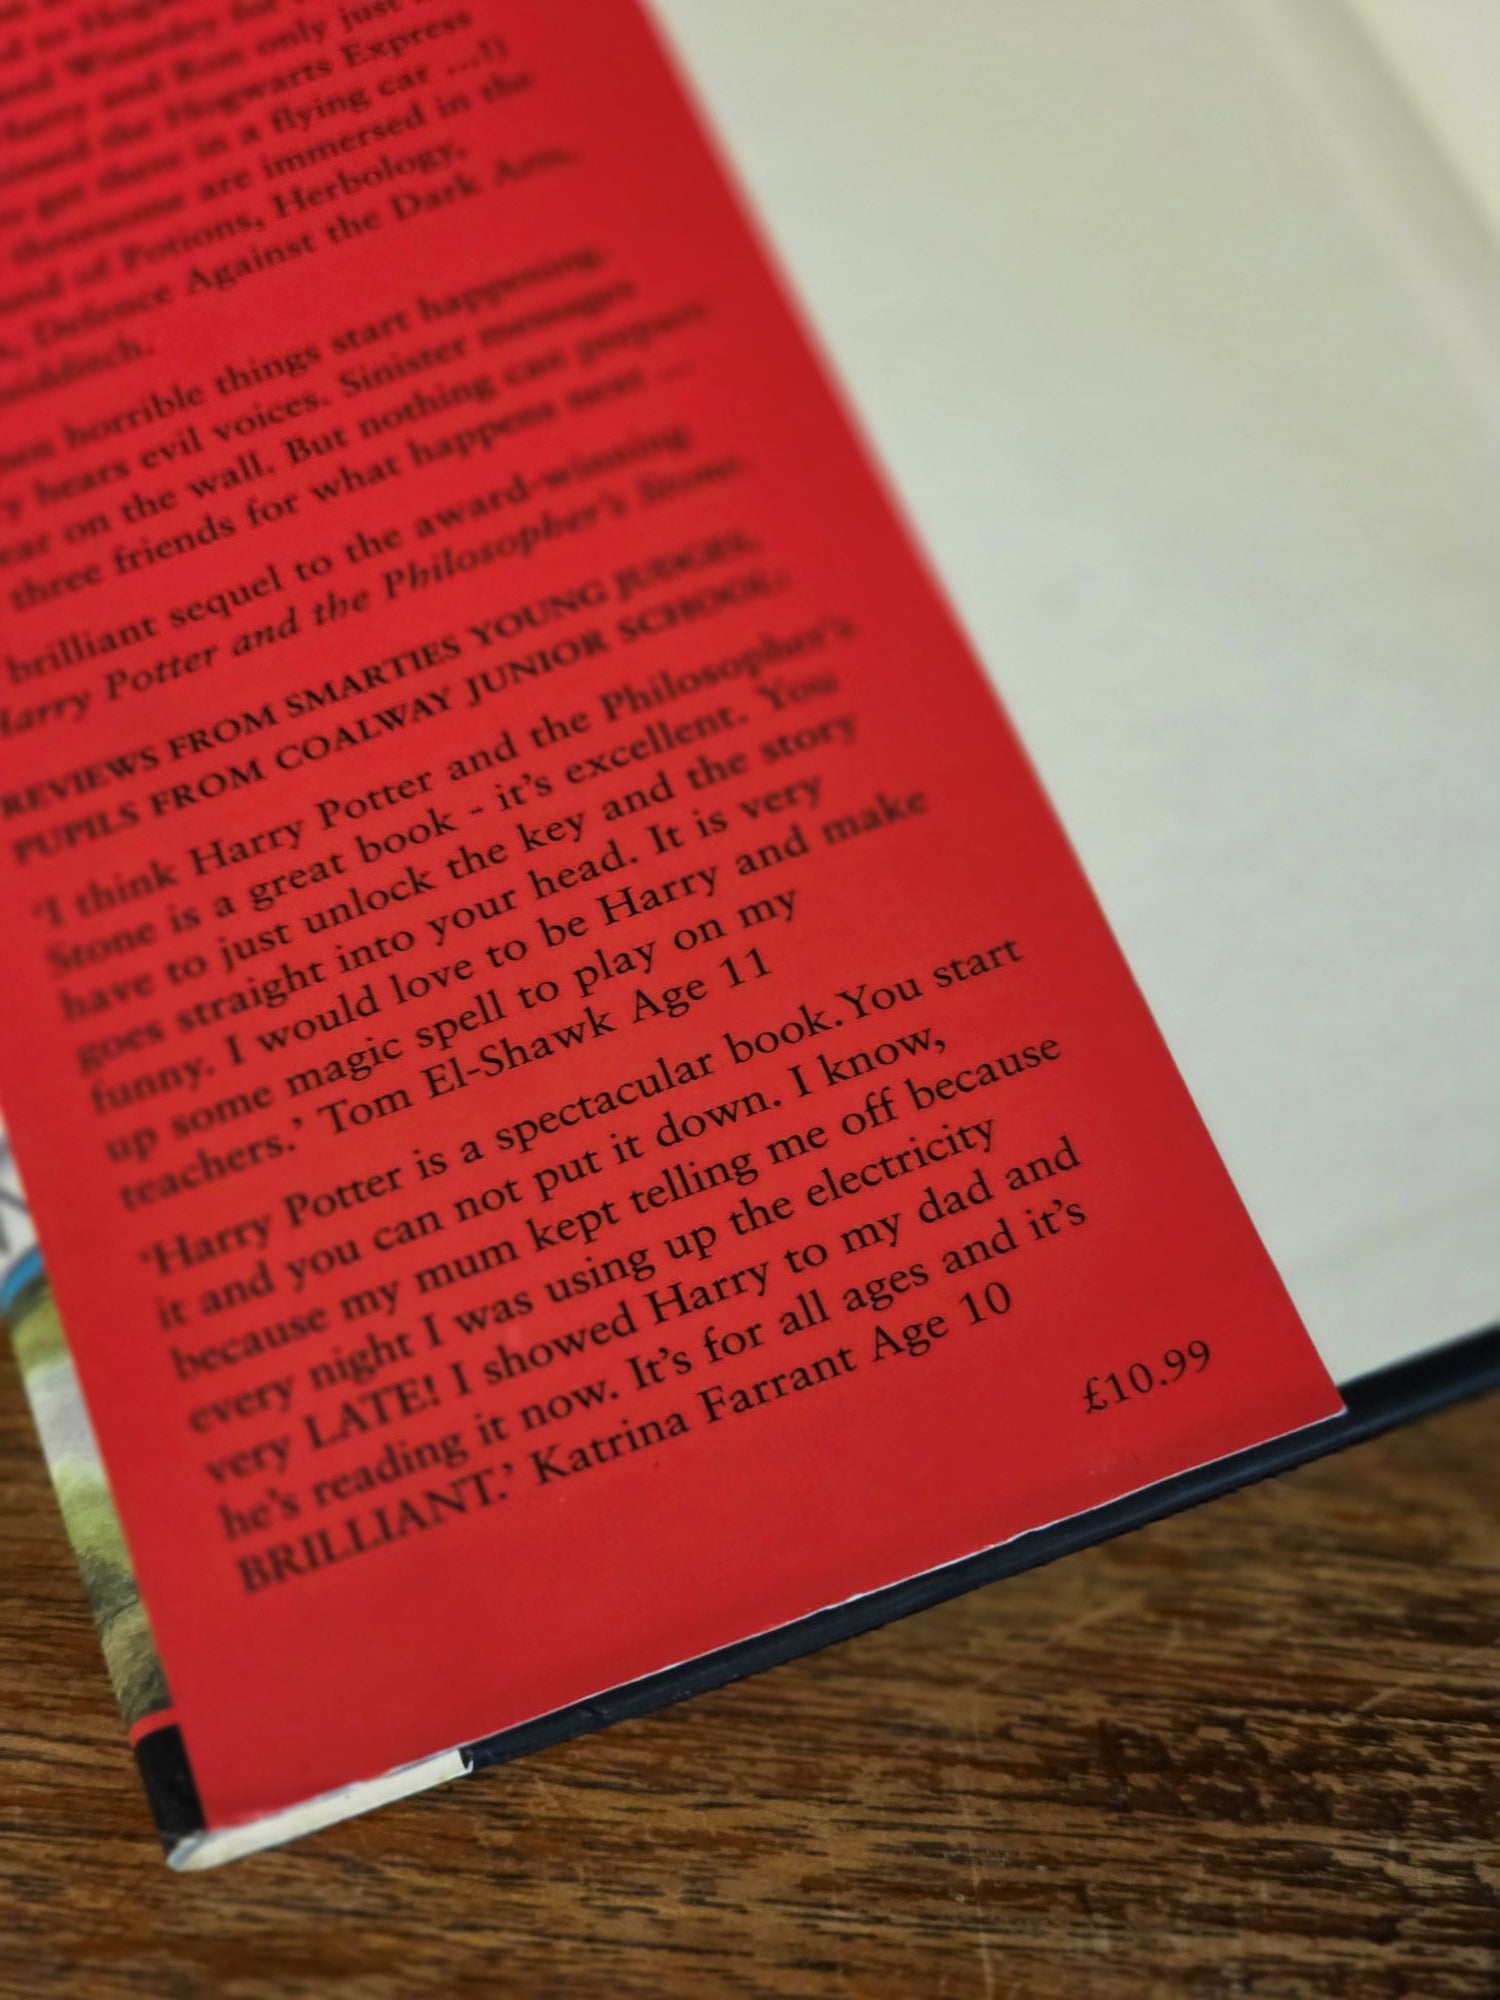 to Hogwarts
and Weasley for
Harry and Ron only just
missed the Hogwarts Express
to get there in a flying car ...!)
threesome are immersed in the
of Potions, Herbology,
Defence Against the Dark Arts,
horrible things start happening.
hears evil voices. Sinister messages
on the wall. But nothing can prepare
three friends for what happens next ...
brilliant sequel to the award-winning
Harry Potter and the Philosopher's Stone.
REVIEWS FROM SMARTIES YOUNG JUDGES,
PUPILS FROM COALWAY JUNIOR SCHOOL:
'I think Harry Potter and the Philosopher's
Stone is a great book - it's excellent. You
have to just unlock the key and the story
goes straight into your head. It is very
funny. I would love to be Harry and make
up some magic spell to play on my
teachers.' Tom El-Shawk Age 11
'Harry Potter is a spectacular book. You start
it and you can not put it down. I know,
because my mum kept telling me off because
every night I was using up the electricity
very LATE! I showed Harry to my dad and
he's reading it now. It's for all ages and it's
BRILLIANT.' Katrina Farrant Age 10
£10.99